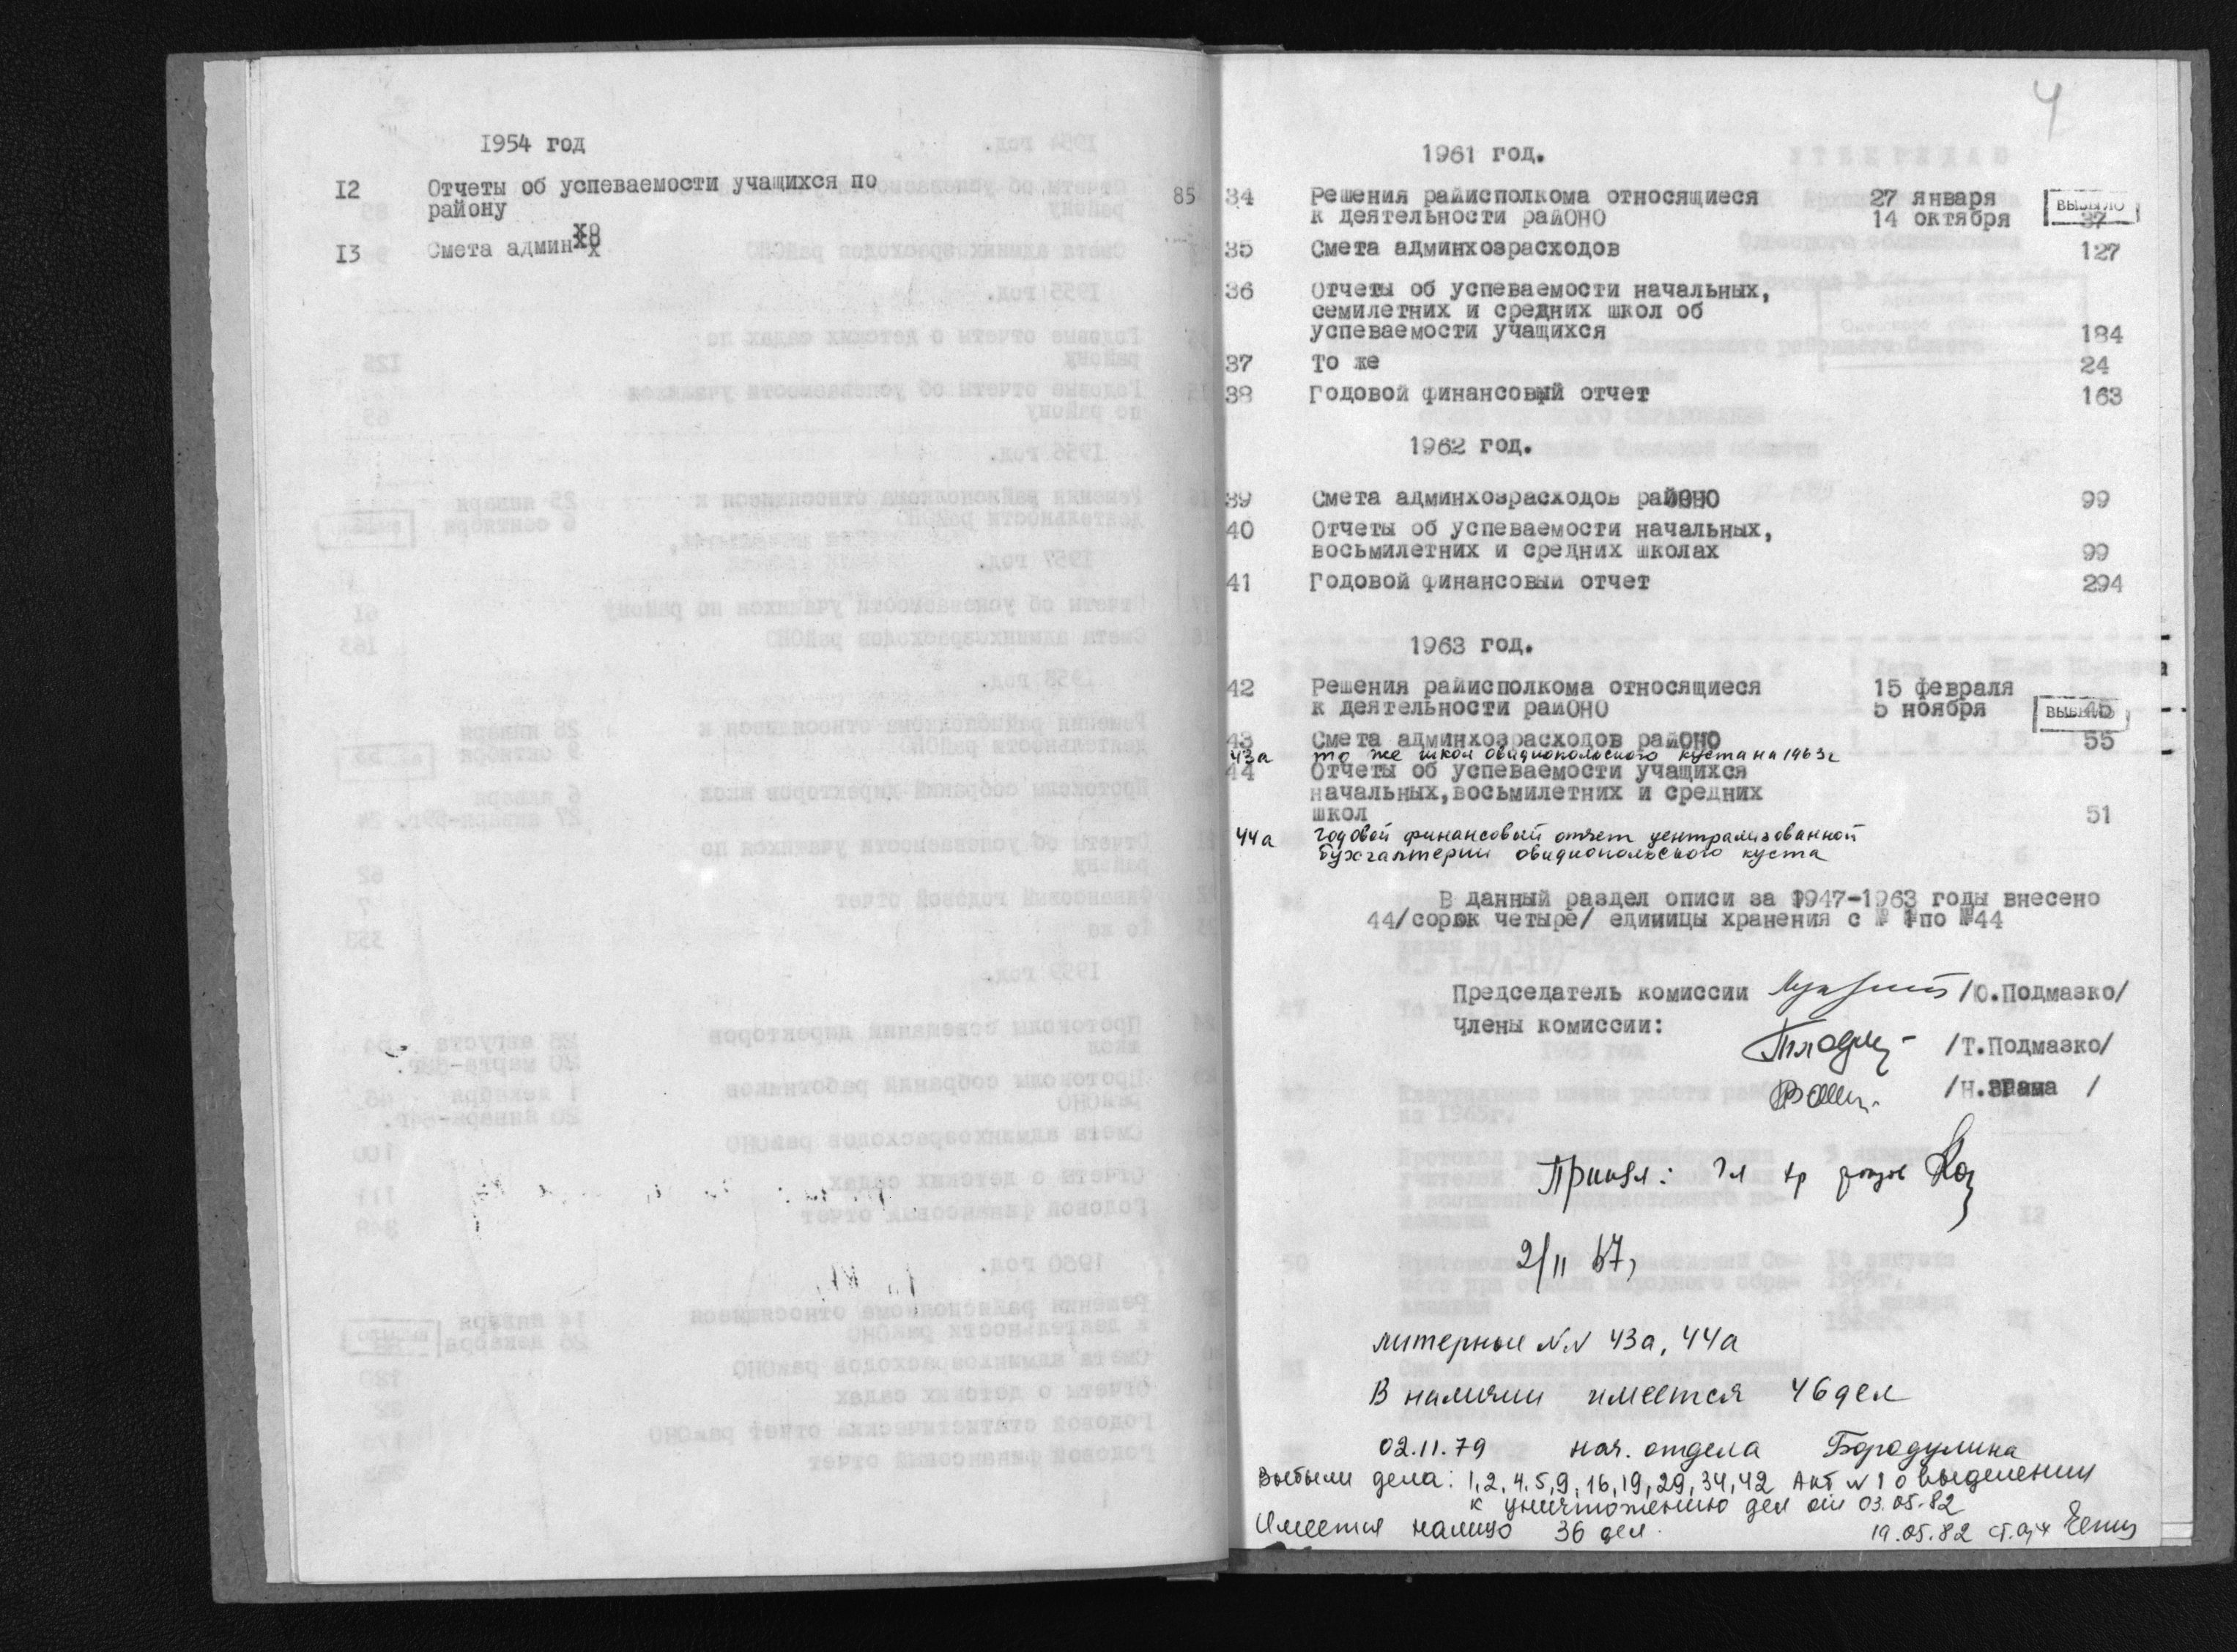 1954 год
12 Отчеты об успеваемости учащихся по 85
району
13 Смета админхо
4
1961 год.
34 Решения райисполкома относящиеся 27 января ВЫБЫЛО
к деятельности райОНО 14 октября 37
35 Смета админхозрасходов 127
36 Отчеты об успеваемости начальных,
семилетних и средних школ об
успеваемости учащихся 184
37 То же 24
38 Годовой финансовый отчет 163
1962 год.
39 Смета админхозрасходов райОНО 99
40 Отчеты об успеваемости начальных,
восьмилетних и средних школах 99
41 Годовой финансовый отчет 294
1963 год.
42 Решения райисполкома относящиеся 15 февраля
к деятельности райОНО 5 ноября ВЫБЫЛО 45
43 Смета админхозрасходов райОНО 55
43а то же школ овидиопольского куста на 1963г
44 Отчеты об успеваемости учащихся
начальных,восьмилетних и средних
школ 51
44а годовой финансовый отчет централизованной
бухгалтерии овидиопольского куста
В данный раздел описи за 1947-1963 годы внесено
44/сорок четыре/ единицы хранения с № 1 по №44
Председатель комиссии /Ю.Подмазко/
Члены комиссии:
/Т.Подмазко/
/Н. /
Принял:
2/II 67г
литерные NN 43а, 44а
В наличии имеется 46 дел
02.11.79 нач. отдела Бородулина
Выбыли дела: 1,2,4,5,9,16,19,29,34,42 Акт N 1 о выделении
к уничтожению дел от 03.05.82
Имеется налицо 36 дел.
19.05.82 ст.